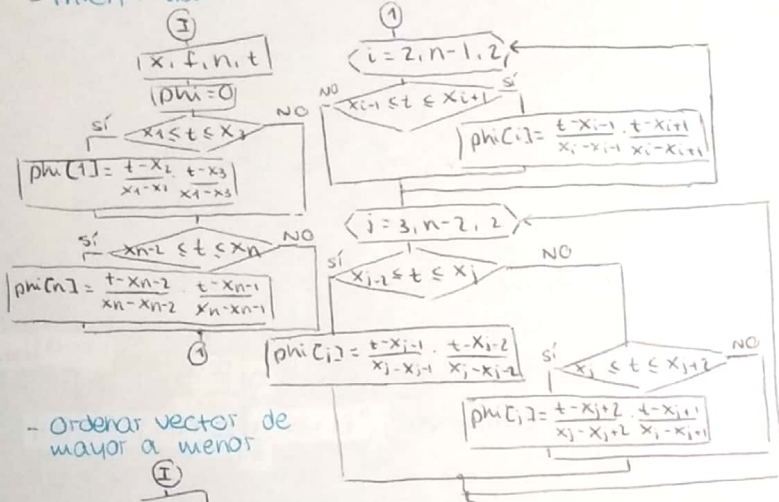 I
x, f, n, t
phi=0
x1 ≤ t ≤ x3
SÍ
NO
phi[1] = t-x2/x1-x2 · t-x3/x1-x3
xn-2 ≤ t ≤ xn
SÍ
NO
phi[n] = t-xn-2/xn-xn-2 · t-xn-1/xn-xn-1
1
- Ordenar vector de
mayor a menor
I
1
i = 2, n-1, 2
NO
xi-1 ≤ t ≤ xi+1
SÍ
phi[i] = t-xi-1/xi-xi-1 · t-xi+1/xi-xi+1
j = 3, n-2, 2
SÍ
xj-2 ≤ t ≤ xj
NO
phi[j] = t-xj-1/xj-xj-1 · t-xj-2/xj-xj-2
SÍ
xj ≤ t ≤ xj+2
NO
phi[j] = t-xj+2/xj-xj+2 · t-xj+1/xj-xj+1